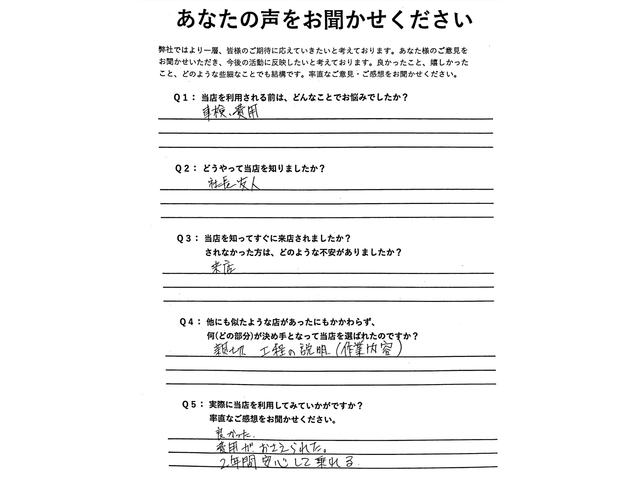 あなたの声をお聞かせください
弊社ではより一層、皆様のご期待に応えていきたいと考えております。あなた様のご意見を
お聞かせいただき、今後の活動に反映したいと考えております。良かったこと、嬉しかった
こと、どのような些細なことでも結構です。率直なご意見・ご感想をお聞かせください。
Q1：当店を利用される前は、どんなことでお悩みでしたか？
車検、費用
Q2：どうやって当店を知りましたか？
社長友人
Q3：当店を知ってすぐに来店されましたか？
されなかった方は、どのような不安がありましたか？
来店
Q4：他にも似たような店があったにもかかわらず、
何(どの部分)が決め手となって当店を選ばれたのですか？
親切 工程の説明（作業内容）
Q5：実際に当店を利用してみていかがですか？
率直なご感想をお聞かせください。
良かった。
費用がおさえられた。
2年間安心して乗れる